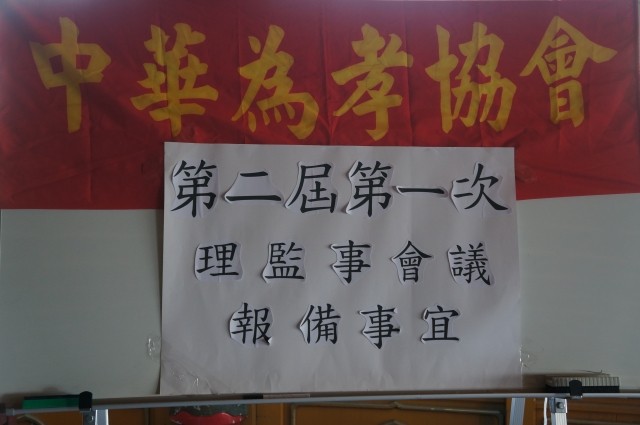 中華為孝協會
第二屆第一次
理監事會議
報備事宜